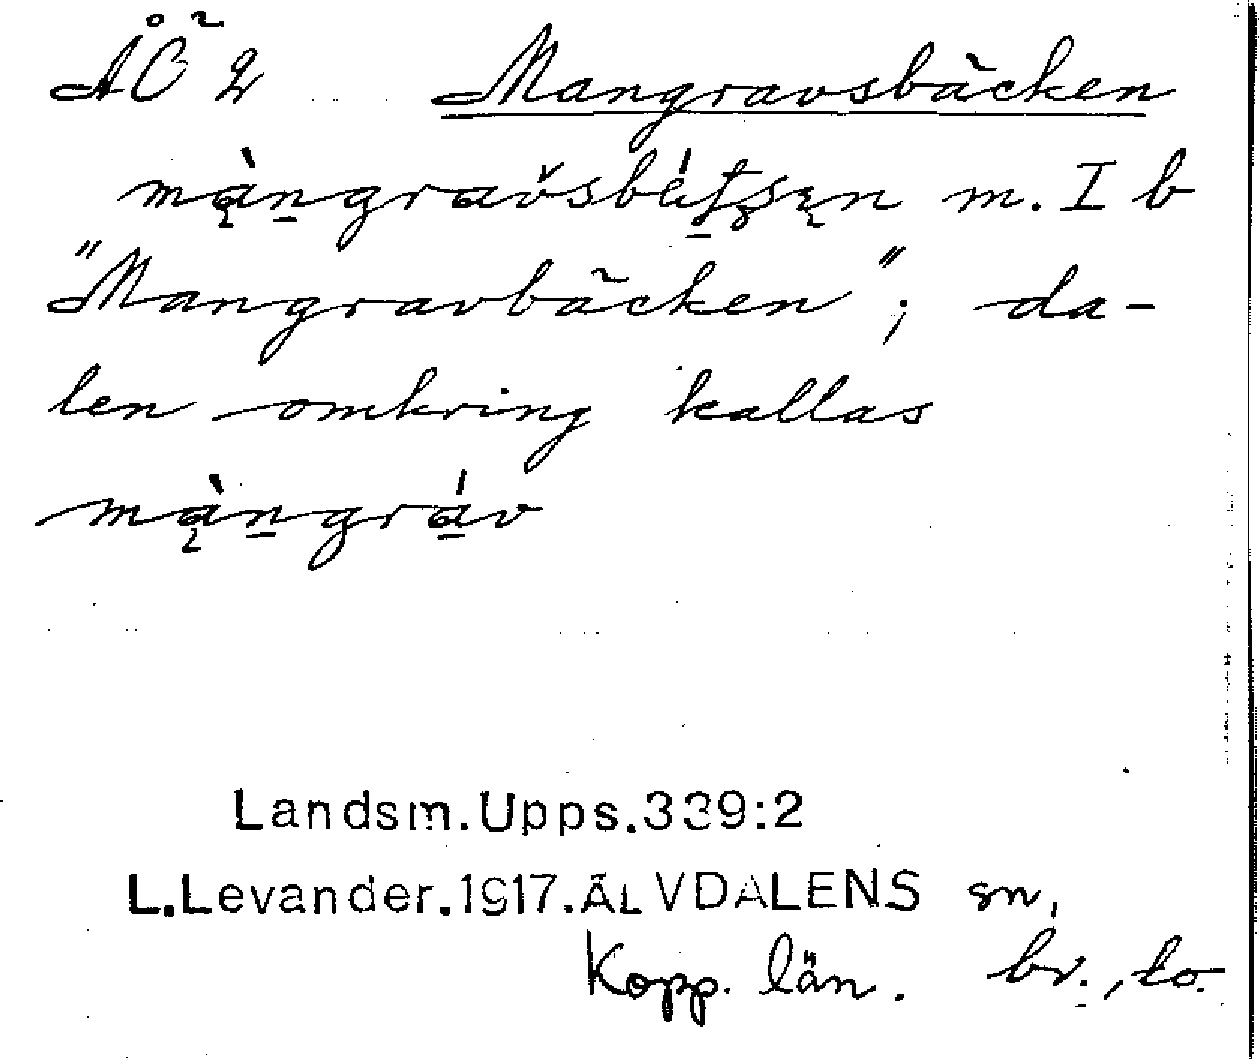 ÅÖ 2 Mangravsbäcken
mą̀ṉgravsbétsęn m. I b
"Mangravbäcken"; da-
len omkring kallas
mą̀ṉgrá̱v
Landsm.Upps.339:2
L.Levander.1917.ÄLVDALENS sn,
Kopp. län. br., to.